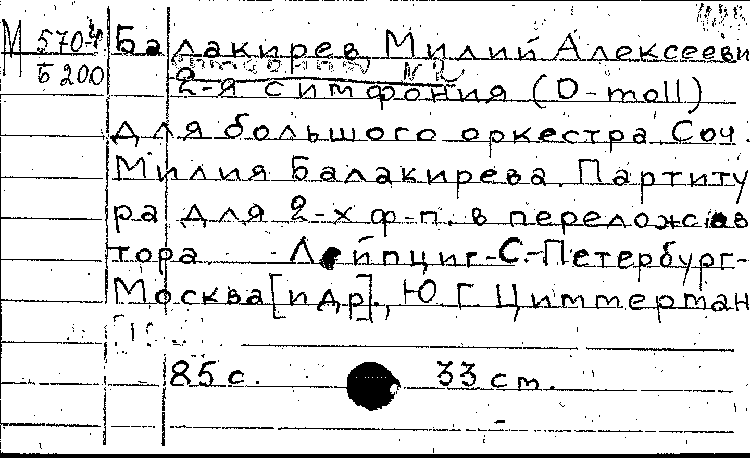 М 570-4
Б 200
Балакирев Милий Алексееви
N 2
2-я симфония (D-moll)
для большого оркестра. Соч.
Милия Балакирева. Партиту
ра для 2-х ф-п. в перелож. ав
тора Лейпциг-С.-Петербург-
Москва [и др]., Ю. Г. Циммерман
85 с. 33 см.